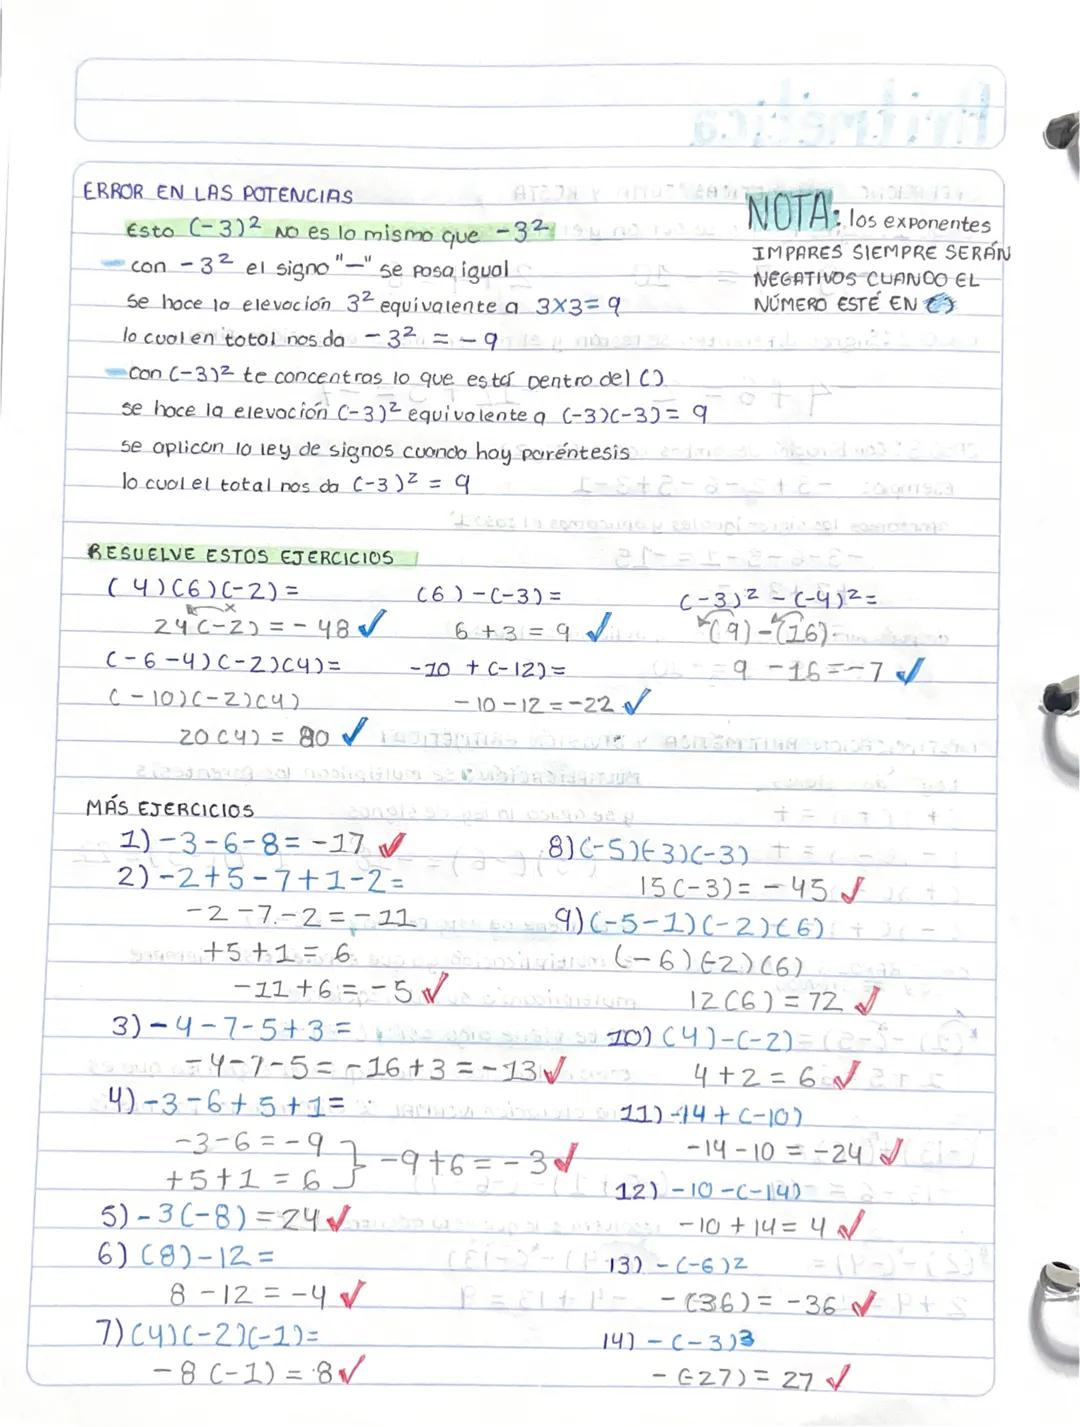 ERROR EN LAS POTENCIAS
Esto (-3)² NO es lo mismo que -3²
con -3² el signo "-" se pasa igual
se hace la elevación 3² equivalente a 3x3=9
lo cual en total nos da -3² = -9
con (-3)² te concentras lo que está dentro del ()
se hace la elevación (-3)² equivalente a (-3)(-3)= 9
se aplican la ley de signos cuando hay paréntesis
lo cual el total nos da (-3)² = 9
NOTA: los exponentes
IMPARES SIEMPRE SERÁN
NEGATIVOS CUANDO EL
NÚMERO ESTÉ EN ()
RESUELVE ESTOS EJERCICIOS
(4)(6)(-2)=
24(-2)=-48 ✓
(-6-4)(-2)(4)=
(-10)(-2)(4)
20(4) = 80 ✓
(6)-(-3)=
6+3=9 ✓
-10 + (-12)=
-10-12=-22 ✓
(-3)²-(-4)²=
(9)-(16)
9-16=-7 ✓
MÁS EJERCICIOS
1) -3-6-8= -17 ✓
2) -2+5-7+1-2=
-2-7-2=-11
+5+1=6
-11+6=-5 ✓
3) -4-7-5+3=
-4-7-5=-16+3=-13 ✓
4) -3-6+5+1=
-3-6=-9
+5+1=6
} -9+6=-3 ✓
5) -3(-8)=24 ✓
6) (8)-12=
8-12=-4 ✓
7) (4)(-2)(-1)=
-8(-1)=8 ✓
8) (-5)(-3)(-3)
15(-3)=-45 ✓
9) (-5-1)(-2)(6)
(-6)(-2)(6)
12(6)=72 ✓
10) (4)-(-2)=
4+2=6 ✓
11) -14+(-10)
-14-10=-24 ✓
12) -10-(-14)
-10+14=4 ✓
13) -(-6)²
-(36)=-36 ✓
14) -(-3)³
-(-27)=27 ✓